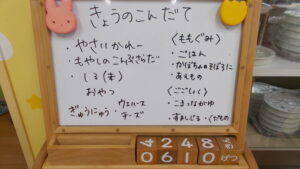 きょうのこんだて
・やさいかれー
・もやしのこんぶさらだ
・しる(末)
おやつ
ぎゅうにゅう ウエハース
チーズ
〈ももぐみ〉
・ごはん
・かぼちゃのそぼろに
・あえもの
〈ごごしょく〉
・こまつながゆ
・すましじる・くだもの
4 2 4 8
0 6 1 0 げつ